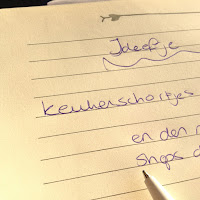 Ideetje
keukenschortjes
en den
shops